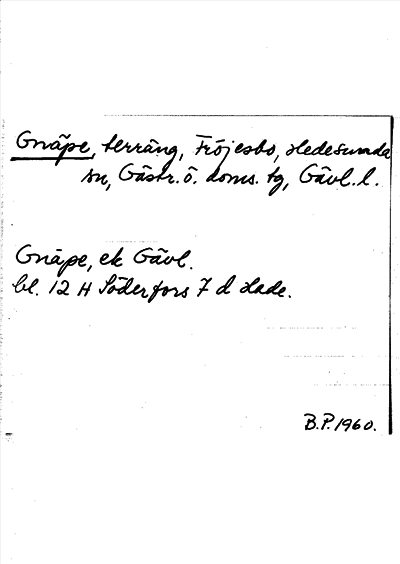 Gnäpe, terräng, Fröjesbo, Hedesunda
sn, Gästr. ö. doms. tg, Gävl. l.
Gnäpe, ek Gävl.
bl. 12 H Söderfors 7 d Lade.
B.P. 1960.